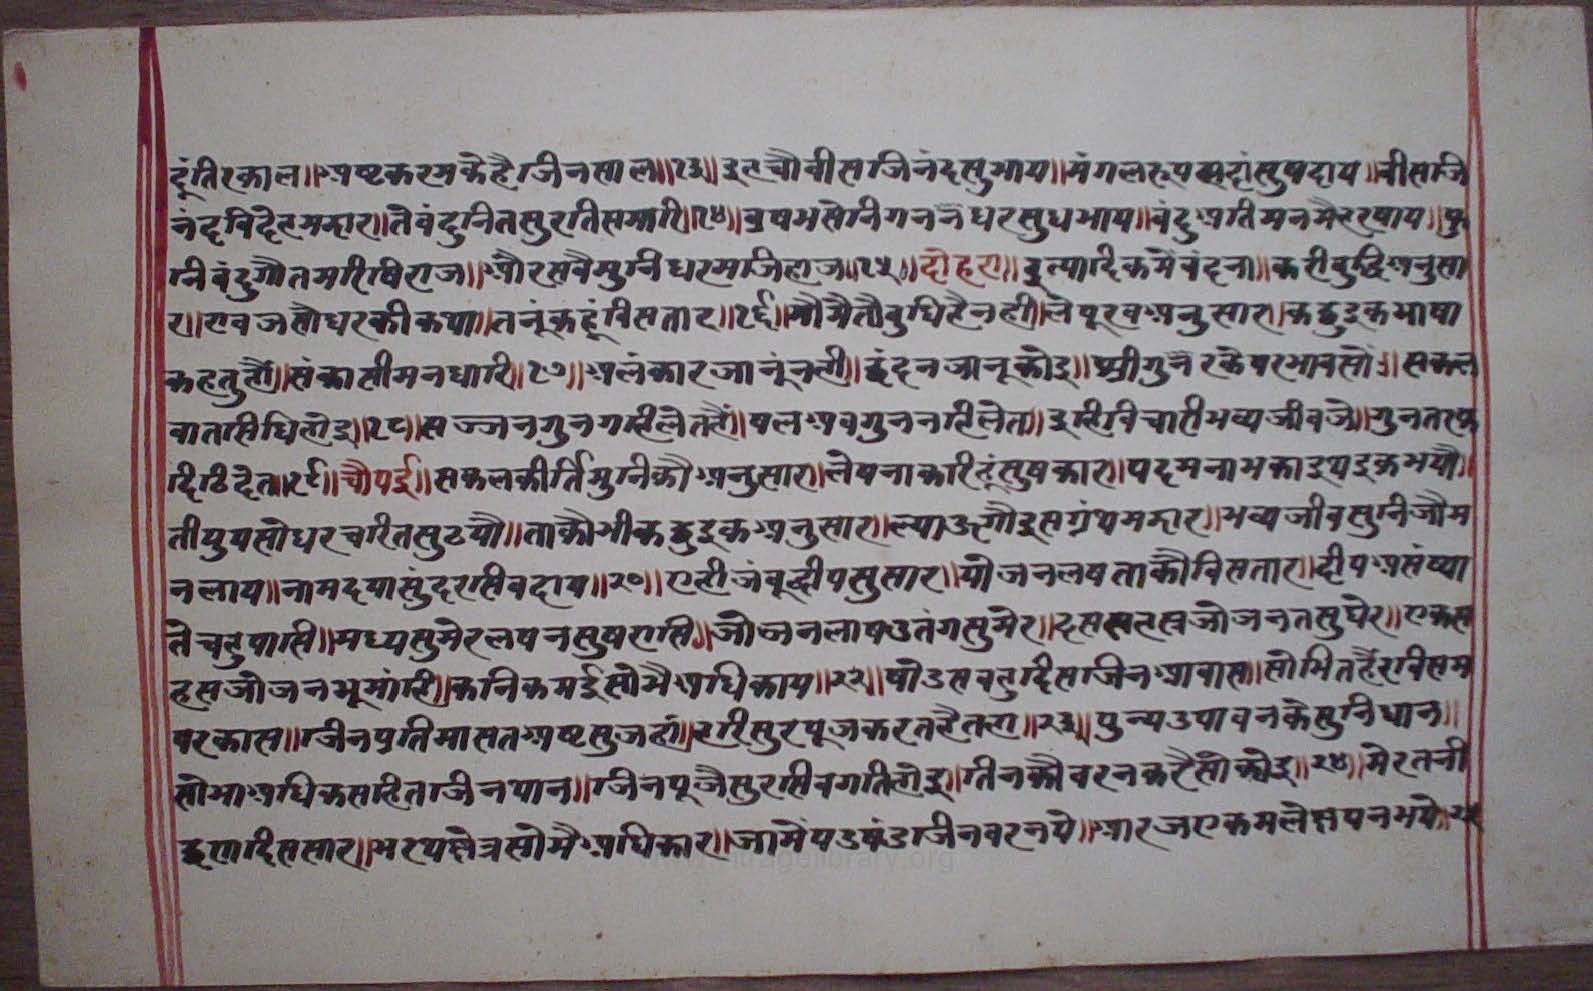 दूंतिरकाल॥अष्टकरमकेहैजिनसाल॥१३॥इहचौवीसजिनंदसुभाय॥मंगलरूपसदांसुषदाय॥वीसजि
नंदविदेहमझार॥तेवंदुनितसुरतिसमारि॥१४॥वृषभसेनिगननधरसुधभाय॥वंदुअतिमनमैहरषाय॥फु
निवंदुगौतमरिषिराज॥औरसवैमुनिधरमजिहाज॥१५॥दोहरा॥इत्यादिकमेवंदना॥करीवुद्धिअनुसा
र॥एवजसोधरकीकथा॥तनूंकहूंविसतार॥१६॥मोमैतौवुधिहैनही॥लेपूरवअनुसार॥कछुइकभाषा
कहतुहौं॥संकासीमनधारि॥१७॥अलंकारजानूंनही॥छंदनजानूकोइ॥श्रीगुनरकेपरभावसों॥सकल
वातसिधिहोइ॥१८॥सज्जनगुनगहिलेतहैं॥षलअवगुननहिलेत॥इहिविचारीभव्यजीवजे॥गुनतरफ
दिठिदेत॥१९॥चौपई॥सकलकीर्तिमुनिकौअनुसार॥लेषनाकरिहूंसुषकार॥पदमनाभकाइथइकभयौ॥
तीयुयसोधरचरितसुठयौ॥ताकौभीकछुइकअनुसार॥ल्याऊगौइसग्रंथमझार॥भव्यजीवसुनिजौम
नलाय॥नामदयासुंदरसिवदाय॥२०॥एहीजंवूद्वीपसुसार॥योजनलषताकौविसतार॥दीपअसंष्या
तेचहुपासि॥मध्यसुमेरलषनसुषरासि॥जोजनलाषउतंगसुमेर॥दससहस्रजोजनतसुघेर॥एकस
हसजोजनभूमांहि॥कनिकमईसोभैअधिकाय॥२२॥षोडसचहुदिसजिनआवास॥सोभितहैंरविसम
परकास॥जिनप्रतिमासतअष्टसुजहां॥हरिसुरपूजकरतहैतहा॥२३॥पुन्यउपावनकैसुनिधान॥
सोभाअधिकसहितजिनथान॥जिनपूजैसुरसिवगतिहोइ॥तिनकौवरनकरैसोकोइ॥२४॥मेरतनी
दछणदिससार॥भरथक्षेत्रसोभैअधिकार॥जामेंषडषंडजिनवरनये॥आरजएकमलेछपनभये॥२५